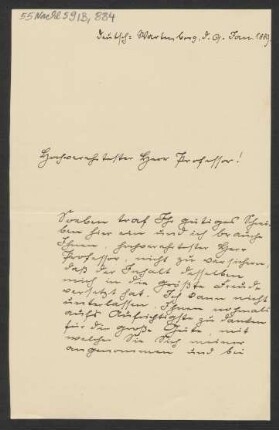 55 Nachl 59/B, 884
Deutsch-Wartenberg, d. 9. Jan. 1889
Hochverehrtester Herr Professor!
Soeben traf Ihr gütiges Schrei-
ben hier ein und ich brauche
Ihnen, hochverehrtester Herr
Professor, nicht zu versichern
daß der Inhalt desselben
mich in die größte Freude
versetzt hat. Ich kann nicht
unterlassen, Ihnen nochmals
aufs Aufrichtigste zu danken
für die große Güte, mit
welcher Sie Sich meiner
angenommen und bei